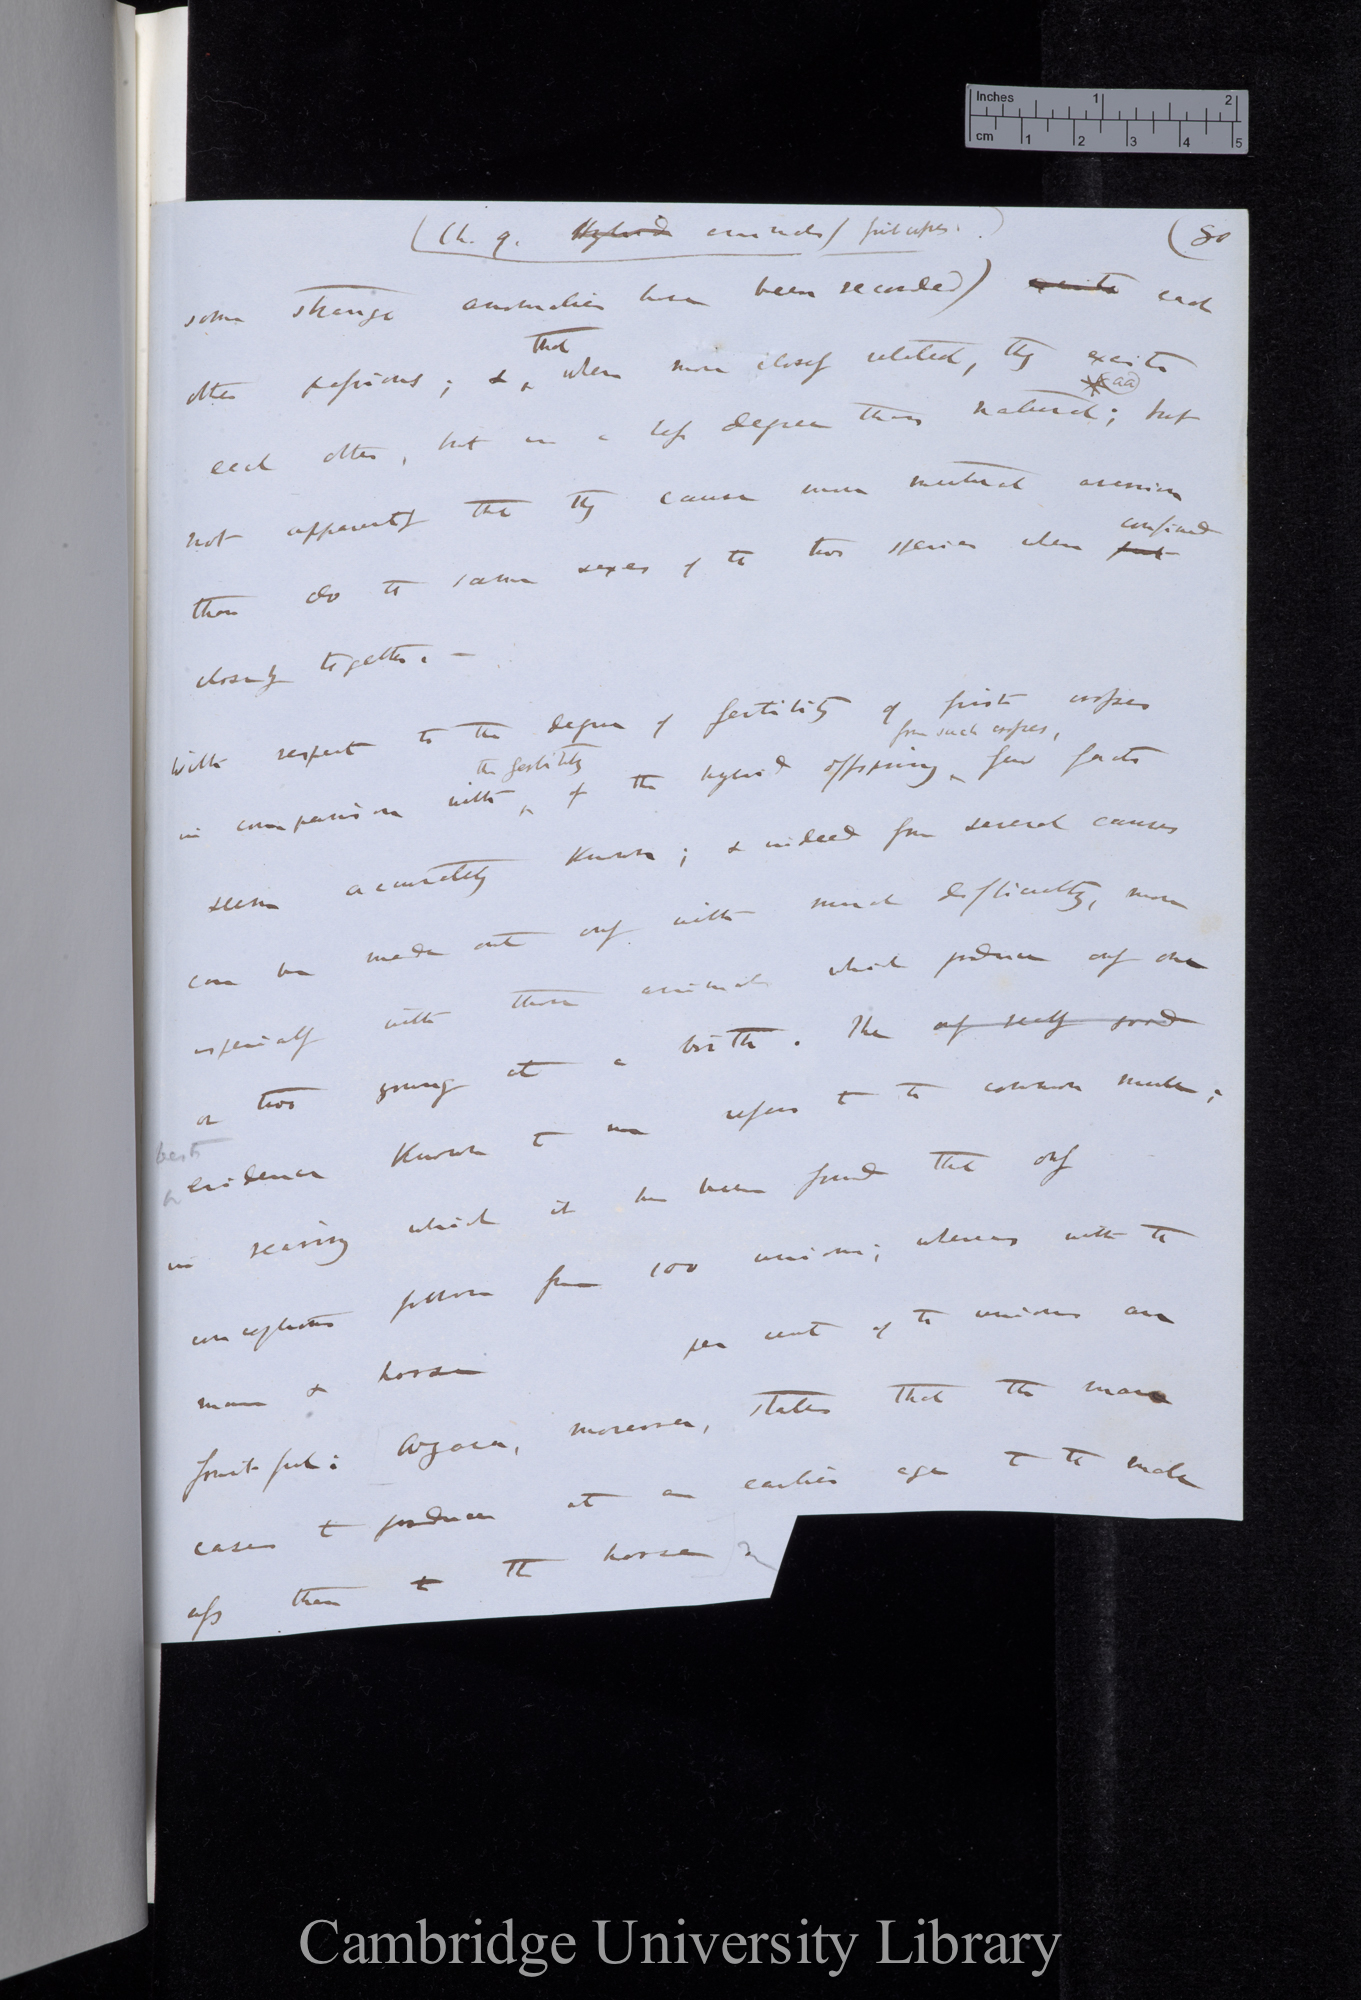 Inches 1 2
cm 1 2 3 4 5
(Ch. 9. Hybrid animals / first crosses.) (80
some strange anomalies have been recorded) excite each
other passions; & that when more closely related, they excite
each other, but in a less degree than natural; but (aa)
not apparently that they cause more mutual aversion
than do the same sexes of the two species when put confined
closely together. —
With respect to the degree of fertility of first crosses
in comparison with the fertility of the hybrid offspring from such crosses, few facts
seem accurately known; & indeed from several causes
can be made out only with much difficulty, more
especially with those animals which produce only one
or two young at a birth. The only really good
best evidence known to me refers to the common mule;
in rearing which it has been found that only
conceptions follow from 100 unions; whereas with the
mare & horse per cent of the unions are
fruitful: Azara, moreover, states that the mare
ceases to produce at an earlier age to the male
ass than to the horse
Cambridge University Library